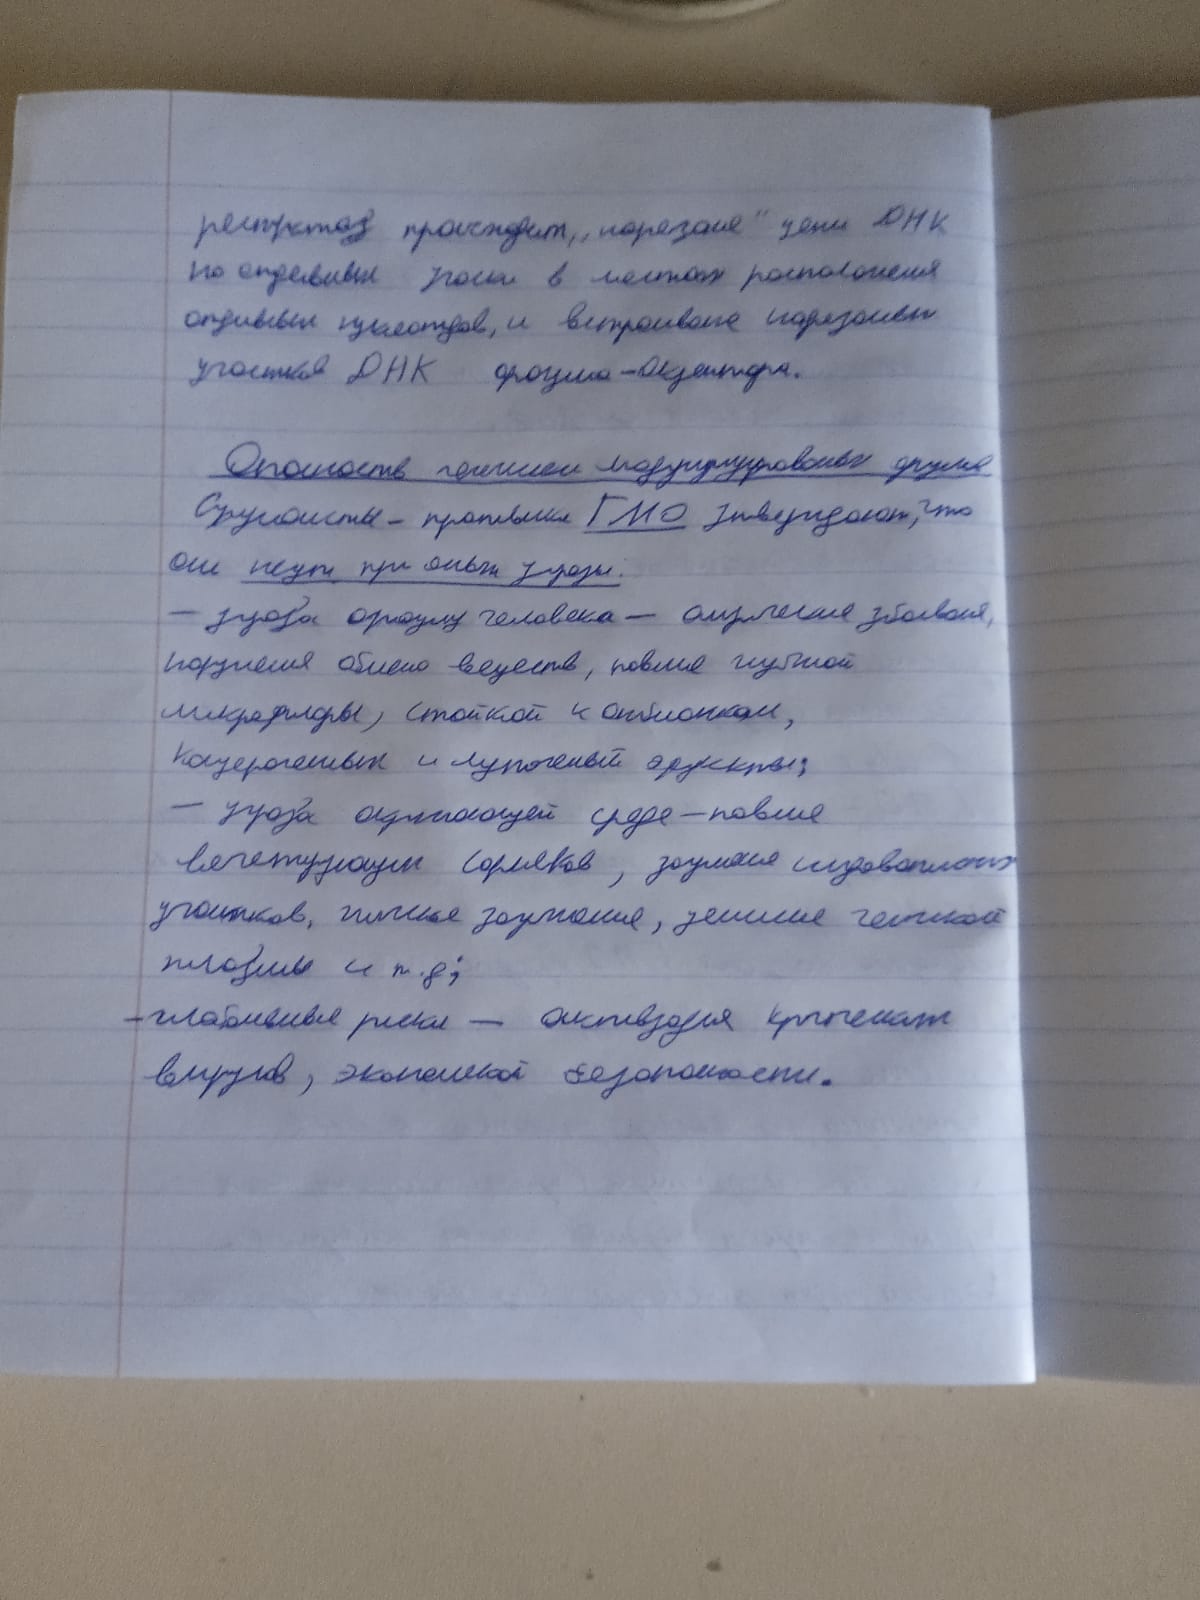 рестриктаз происходит „нарезание" цепи ДНК
на отдельные участки в местах расположения
отдельных нуклеотидов, и встраивание нарезанных
участков ДНК организма-акцептора.
Опасность генетически модифицированных организмов
Специалисты – противники ГМО утверждают, что
они несут три основных угрозы.
– угроза организму человека – аллергические заболевания,
нарушения обмена веществ, появление желудочной
микрофлоры, стойкой к антибиотикам,
канцерогенный и мутагенный эффекты;
– угроза окружающей среде – появление
вегетирующих сорняков, загрязнение исследовательских
участков, химическое загрязнение, уменьшение генетической
плазмы и т.д;
– глобальные риски – активизация критических
вирусов, экономической безопасности.